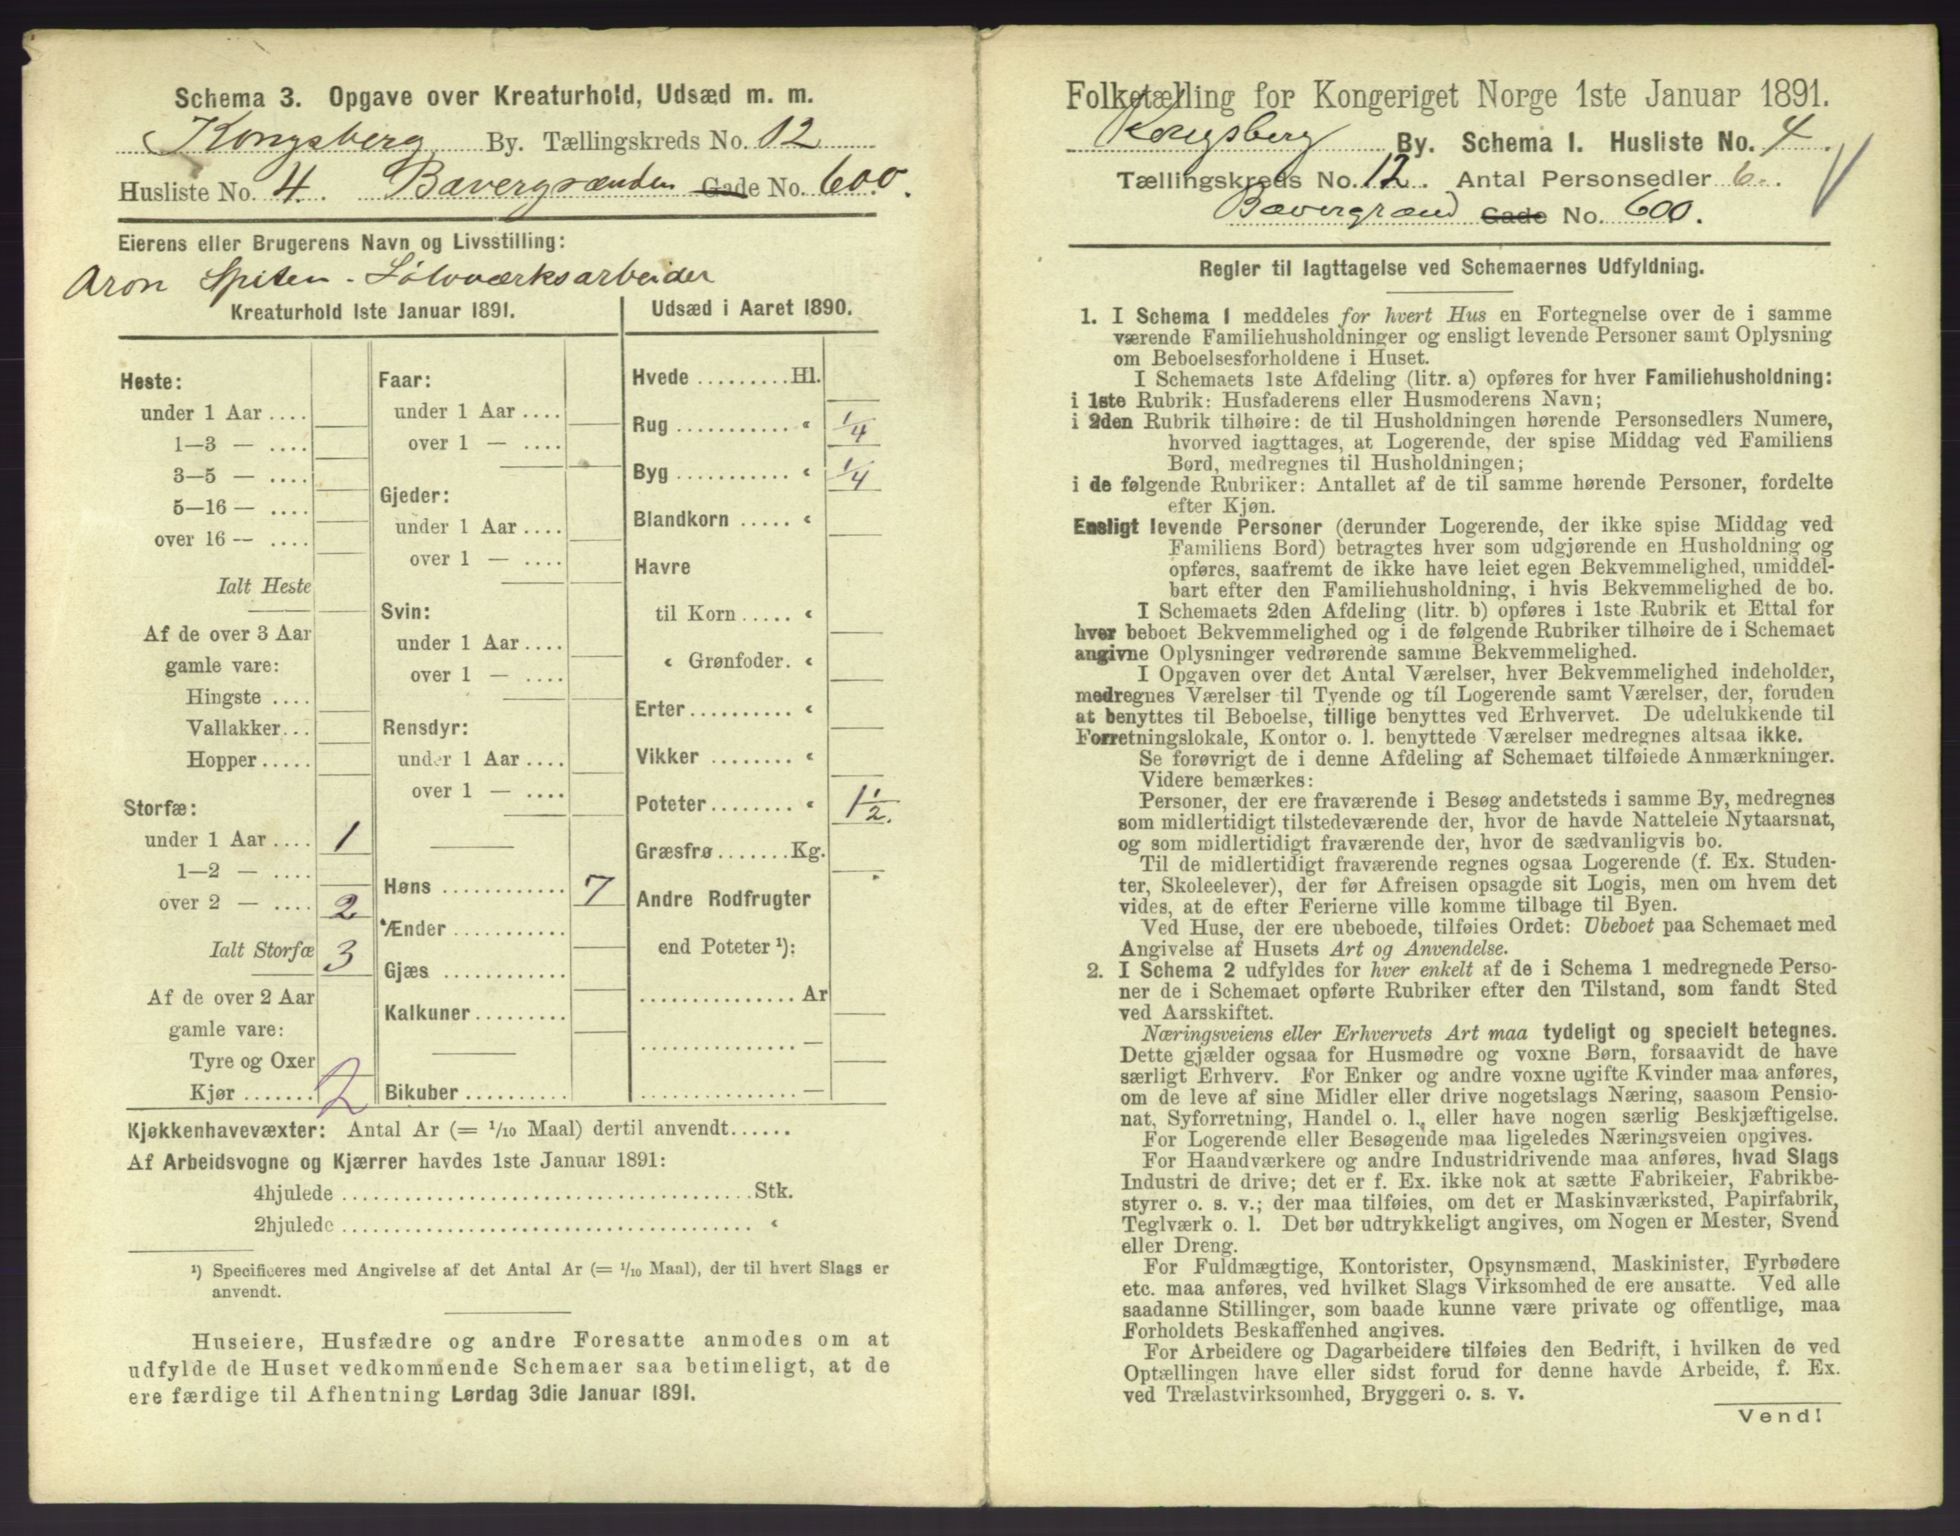 Schema 3. Opgave over Kreaturhold, Udsæd m. m.
Kongsberg By. Tællingskreds No. 12
Husliste No. 4. Bævergrænden Gade No. 600.
Eierens eller Brugerens Navn og Livsstilling:
Aron Spiten - Sølvværksarbeider
Kreaturhold 1ste Januar 1891.
Heste:
under 1 Aar ....
1—3 — ....
3—5 — ....
5—16 — ....
over 16 — ....
Ialt Heste
Af de over 3 Aar
gamle vare:
Hingste ....
Vallakker...
Hopper.....
Storfæ:
under 1 Aar .... 1
1—2 — ....
over 2 — .... 2
Ialt Storfæ 3
Af de over 2 Aar
gamle vare:
Tyre og Oxer
Kjør ....... 2
Faar:
under 1 Aar ....
over 1 — ....
Gjeder:
under 1 Aar ....
over 1 — ....
Svin:
under 1 Aar ....
over 1 — ....
Rensdyr:
under 1 Aar ....
over 1 — ....
Høns ............ 7
Ænder ...........
Gjæs ............
Kalkuner.........
Bikuber ..........
Udsæd i Aaret 1890.
Hvede .........Hl.
Rug ........... « 1/4
Byg ........... « 1/4
Blandkorn ..... «
Havre
til Korn ..... «
« Grønfoder. «
Erter.......... «
Vikker ........ «
Poteter........ « 1 1/2.
Græsfrø.......Kg.
Andre Rodfrugter
end Poteter ¹):
............... Ar
............... —
............... —
Kjøkkenhavevæxter: Antal Ar (= 1/10 Maal) dertil anvendt......
Af Arbeidsvogne og Kjærrer havdes 1ste Januar 1891:
4hjulede ........................................Stk.
2hjulede ........................................ «
¹) Specificeres med Angivelse af det Antal Ar (= 1/10 Maal), der til hvert Slags er
anvendt.
Huseiere, Husfædre og andre Foresatte anmodes om at
udfylde de Huset vedkommende Schemaer saa betimeligt, at de
ere færdige til Afhentning Lørdag 3die Januar 1891.
Folketælling for Kongeriget Norge 1ste Januar 1891.
Kongsberg By. Schema I. Husliste No. 4
Tællingskreds No. 12. Antal Personsedler 6.
Bævergrænd Gade No. 600.
Regler til Iagttagelse ved Schemaernes Udfyldning.
1. I Schema 1 meddeles for hvert Hus en Fortegnelse over de i samme
værende Familiehusholdninger og ensligt levende Personer samt Oplysning
om Beboelsesforholdene i Huset.
I Schemaets 1ste Afdeling (litr. a) opføres for hver Familiehusholdning:
i 1ste Rubrik: Husfaderens eller Husmoderens Navn;
i 2den Rubrik tilhøire: de til Husholdningen hørende Personsedlers Numere,
hvorved iagttages, at Logerende, der spise Middag ved Familiens
Bord, medregnes til Husholdningen;
i de følgende Rubriker: Antallet af de til samme hørende Personer, fordelte
efter Kjøn.
Ensligt levende Personer (derunder Logerende, der ikke spise Middag ved
Familiens Bord) betragtes hver som udgjørende en Husholdning og
opføres, saafremt de ikke have leiet egen Bekvemmelighed, umiddel-
bart efter den Familiehusholdning, i hvis Bekvemmelighed de bo.
I Schemaets 2den Afdeling (litr. b) opføres i 1ste Rubrik et Ettal for
hver beboet Bekvemmelighed og i de følgende Rubriker tilhøire de i Schemaet
angivne Oplysninger vedrørende samme Bekvemmelighed.
I Opgaven over det Antal Værelser, hver Bekvemmelighed indeholder,
medregnes Værelser til Tyende og til Logerende samt Værelser, der, foruden
at benyttes til Beboelse, tillige benyttes ved Erhvervet. De udelukkende til
Forretningslokale, Kontor o. l. benyttede Værelser medregnes altsaa ikke.
Se forøvrigt de i denne Afdeling af Schemaet tilføiede Anmærkninger.
Videre bemærkes:
Personer, der ere fraværende i Besøg andetsteds i samme By, medregnes
som midlertidigt tilstedeværende der, hvor de havde Natteleie Nytaarsnat,
og som midlertidigt fraværende der, hvor de sædvanligvis bo.
Til de midlertidigt fraværende regnes ogsaa Logerende (f. Ex. Studen-
ter, Skoleelever), der før Afreisen opsagde sit Logis, men om hvem det
vides, at de efter Ferierne ville komme tilbage til Byen.
Ved Huse, der ere ubeboede, tilføies Ordet: Ubeboet paa Schemaet med
Angivelse af Husets Art og Anvendelse.
2. I Schema 2 udfyldes for hver enkelt af de i Schema 1 medregnede Perso-
ner de i Schemaet opførte Rubriker efter den Tilstand, som fandt Sted
ved Aarsskiftet.
Næringsveiens eller Erhvervets Art maa tydeligt og specielt betegnes.
Dette gjælder ogsaa for Husmødre og voxne Børn, forsaavidt de have
særligt Erhverv. For Enker og andre voxne ugifte Kvinder maa anføres,
om de leve af sine Midler eller drive nogetslags Næring, saasom Pensio-
nat, Syforretning, Handel o. l., eller have nogen særlig Beskjæftigelse.
For Logerende eller Besøgende maa ligeledes Næringsveien opgives.
For Haandværkere og andre Industridrivende maa anføres, hvad Slags
Industri de drive; det er f. Ex. ikke nok at sætte Fabrikeier, Fabrikbe-
styrer o. s. v.; der maa tilføies, om det er Maskinværksted, Papirfabrik,
Teglværk o. l. Det bør udtrykkeligt angives, om Nogen er Mester, Svend
eller Dreng.
For Fuldmægtige, Kontorister, Opsynsmænd, Maskinister, Fyrbødere
etc. maa anføres, ved hvilket Slags Virksomhed de ere ansatte. Ved alle
saadanne Stillinger, som baade kunne være private og offentlige, maa
Forholdets Beskaffenhed angives.
For Arbeidere og Dagarbeidere tilføies den Bedrift, i hvilken de ved
Optællingen have eller sidst forud for denne havde Arbeide, f. Ex.
ved Trælastvirksomhed, Bryggeri o. s. v.
Vend!